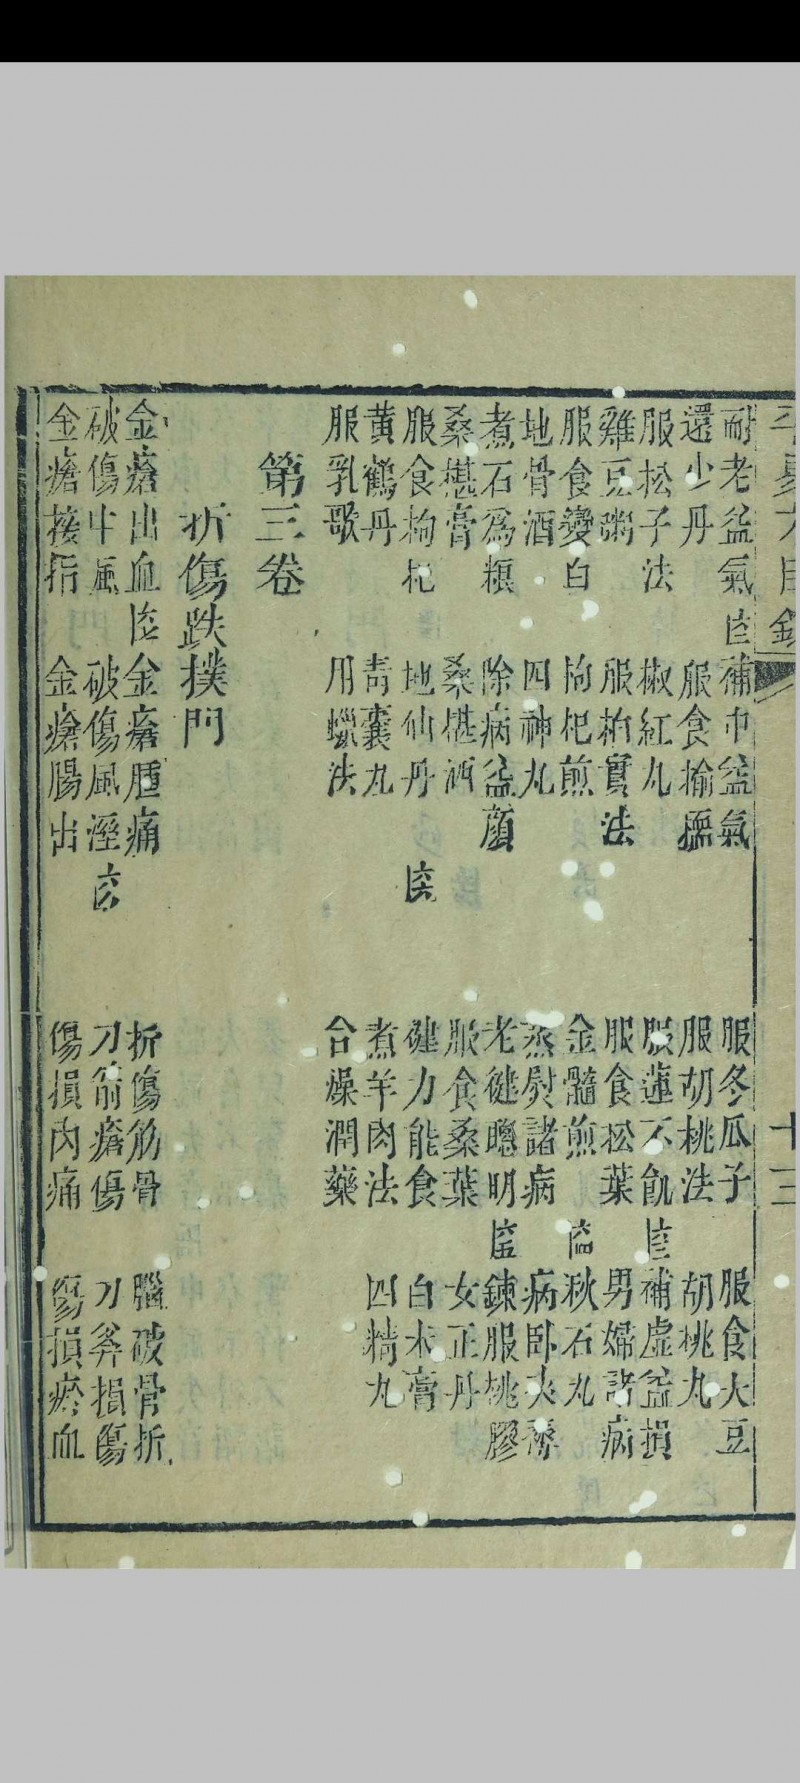 目錄 十三
耐老益氣 補中益氣 服冬瓜子 服食大豆
還少丹 服食榆 服胡桃法 胡桃丸
服松子法 椒紅丸 服蓮不飢 補虛益損
雞豆粥 服柏實法 服食松葉 男婦諸病
服食變白 枸杞煎 金髓煎 秋石丸
地骨酒 四神丸 蒸熨諸病 病臥夾
煮石爲糧 除病益顏 老健聰明 鍊服桃膠
桑椹膏 桑椹酒 服食桑葉 女正丹
服食枸杞 地仙丹 健力能食 白朮膏
黃鶴丹 青囊丸 煮羊肉法 四精丸
服乳歌 用蠟法 合燥潤藥
第三卷
折傷跌撲門
金瘡出血 金瘡腫痛 折傷筋骨 腦破骨折
破傷中風 破傷風溼 刀箭瘡傷 刀斧損傷
金瘡接指 金瘡腸出 傷損內痛 傷損瘀血